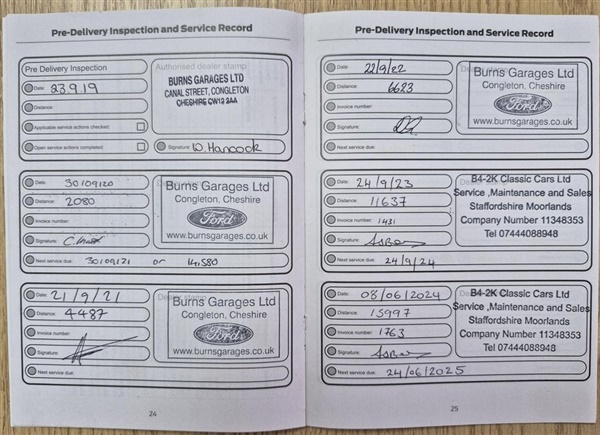 Pre-Delivery Inspection and Service Record
Pre Delivery Inspection
Authorised dealer stamp
Date: 23.9.19
BURNS GARAGES LTD
CANAL STREET, CONGLETON
CHESHIRE CW12 2AA
Distance:
Applicable service actions checked:
Open service actions completed:
Signature: W. Hancock
Date: 30/09/20
Distance: 2080
Invoice number:
Signature:
Next service due: 30/09/21 or 14,580
Burns Garages Ltd
Congleton, Cheshire
Ford
www.burnsgarages.co.uk
Date: 21/9/21
Distance: 4487
Invoice number:
Signature:
Next service due:
Burns Garages Ltd
Congleton, Cheshire
Ford
www.burnsgarages.co.uk
24
Pre-Delivery Inspection and Service Record
Date: 22/9/22
Distance: 6623
Invoice number:
Signature:
Next service due:
Burns Garages Ltd
Congleton, Cheshire
Ford
www.burnsgarages.co.uk
Date: 24/9/23
Distance: 11637
Invoice number: 1431
Signature:
Next service due: 24/9/24
B4-2K Classic Cars Ltd
Service ,Maintenance and Sales
Staffordshire Moorlands
Company Number 11348353
Tel 07444088948
Date: 08/06/2024
Distance: 15997
Invoice number: 1763
Signature:
Next service due: 24/06/2025
B4-2K Classic Cars Ltd
Service ,Maintenance and Sales
Staffordshire Moorlands
Company Number 11348353
Tel 07444088948
25